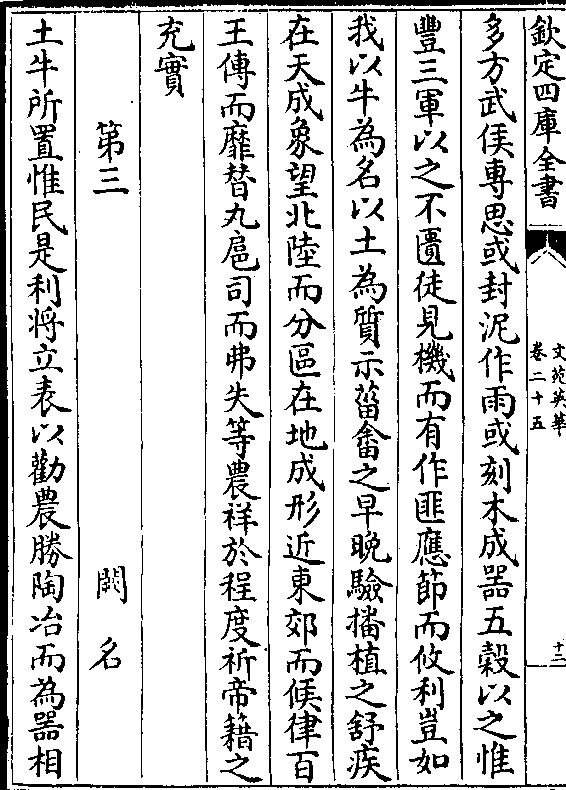 欽定四庫全書
文苑英華
卷二十五
十二
多方武侯專思或封泥作雨或刻木成器五穀以之惟
豐三軍以之不匱徒見機而有作匪應節而攸利豈如
我以牛為名以土為質示菑畬之早晚驗播植之舒疾
在天成象望北陸而分區在地成形近東郊而候律百
王傳而靡替九扈司而弗失等農祥於程度祈帝籍之
充實
第三 闕名
土牛所置惟民是利將立表以勸農勝陶冶而為器相